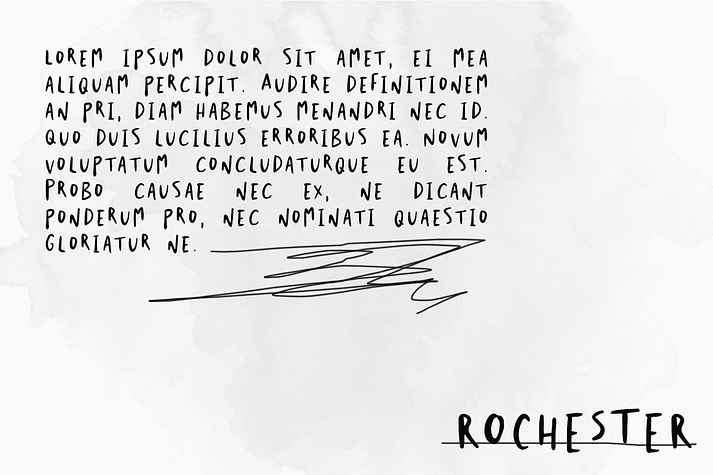 LOREM IPSUM DOLOR SIT AMET, EI MEA
ALIQUAM PERCIPIT. AUDIRE DEFINITIONEM
AN PRI, DIAM HABEMUS MENANDRI NEC ID.
QUO DUIS LUCILIUS ERRORIBUS EA. NOVUM
VOLUPTATUM CONCLUDATURQUE EU EST.
PROBO CAUSAE NEC EX, NE DICANT
PONDERUM PRO, NEC NOMINATI QUAESTIO
GLORIATUR NE.
ROCHESTER